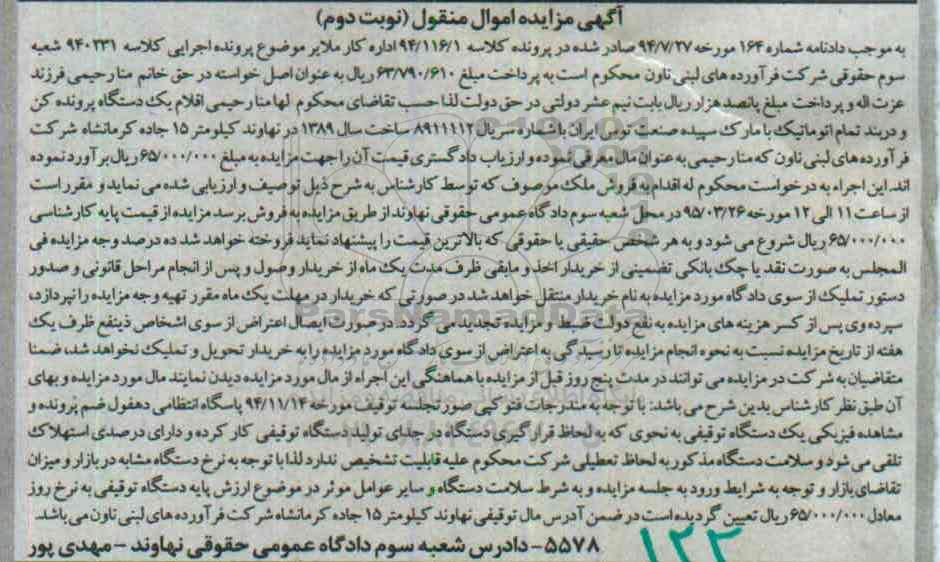 آگهی مزایده اموال منقول (نوبت دوم)
به موجب دادنامه شماره ۱۶۴ مورخه ۹۴/۷/۲۷ صادر شده در پرونده کلاسه ۹۴/۱۱۶/۱ اداره کار ملایر موضوع پرونده اجرایی کلاسه ۹۴۰۲۳۱ شعبه
سوم حقوقی شرکت فرآورده های لبنی تاون محکوم است به پرداخت مبلغ ۶۳/۷۹۰/۶۱۰ ریال به عنوان اصل خواسته در حق خانم منا رحیمی فرزند
عزت اله و پرداخت مبلغ پانصد هزار ریال بابت نیم عشر دولتی در حق دولت لذا حسب تقاضای محکوم لها منا رحیمی اقلام یک دستگاه پرونده کن
و دربند تمام اتوماتیک با مارک سپیده صنعت توس ایران با شماره سریال ۸۹۱۱۱۱۲ ساخت سال ۱۳۸۹ در نهاوند کیلومتر ۱۵ جاده کرمانشاه شرکت
فرآورده های لبنی تاون که منا رحیمی به عنوان مال معرفی نموده و ارزیاب دادگستری قیمت آن را جهت مزایده به مبلغ ۶۵/۰۰۰/۰۰۰ ریال برآورد نموده
اند. این اجراء به درخواست محکوم له اقدام به فروش ملک موصوف که توسط کارشناس به شرح ذیل توصیف و ارزیابی شده می نماید و مقرر است
از ساعت ۱۱ الی ۱۲ مورخه ۹۵/۰۳/۲۶ در محل شعبه سوم دادگاه عمومی حقوقی نهاوند از طریق مزایده به فروش برسد مزایده از قیمت پایه کارشناسی
۶۵/۰۰۰/۰۰۰ ریال شروع می شود و به هر شخص حقیقی یا حقوقی که بالاترین قیمت را پیشنهاد نماید فروخته خواهد شد ده درصد وجه مزایده فی
المجلس به صورت نقد یا چک بانکی تضمینی از خریدار اخذ و مابقی ظرف مدت یک ماه از خریدار وصول و پس از انجام مراحل قانونی و صدور
دستور تملیک از سوی دادگاه مورد مزایده به نام خریدار منتقل خواهد شد در صورتی که خریدار در مهلت یک ماه مقرر تهیه وجه مزایده را نپردازد،
سپرده وی پس از کسر هزینه های مزایده به نفع دولت ضبط و مزایده تجدید می گردد. در صورت ایصال اعتراض از سوی اشخاص ذینفع ظرف یک
هفته از تاریخ مزایده نسبت به نحوه انجام مزایده تا رسیدگی به اعتراض از سوی دادگاه مورد مزایده را به خریدار تحویل و تملیک نخواهد شد، ضمنا
متقاضیان به شرکت در مزایده می توانند در مدت پنج روز قبل از مزایده با هماهنگی این اجراء از مال مورد مزایده دیدن نمایند مال مورد مزایده و بهای
آن طبق نظر کارشناس بدین شرح می باشد: با توجه به مندرجات فتوکپی صورتجلسه توقیف مورخه ۹۴/۱۱/۱۴ پاسگاه انتظامی دهفول ضم پرونده و
مشاهده فیزیکی یک دستگاه توقیفی به نحوی که به لحاظ قرارگیری دستگاه در جلدای تولید دستگاه توقیفی کار کرده و دارای درصدی استهلاک
تلقی می شود و سلامت دستگاه مذکور به لحاظ تعطیلی شرکت محکوم علیه قابلیت تشخیص ندارد لذا با توجه به نرخ دستگاه مشابه در بازار و میزان
تقاضای بازار و توجه به شرایط ورود به جلسه مزایده و به شرط سلامت دستگاه و سایر عوامل موثر در موضوع ارزش پایه دستگاه توقیفی به نرخ روز
معادل ۶۵/۰۰۰/۰۰۰ ریال تعیین گردیده است در ضمن آدرس مال توقیفی نهاوند کیلومتر ۱۵ جاده کرمانشاه شرکت فرآورده های لبنی تاون می باشد.
۵۵۷۸- دادرس شعبه سوم دادگاه عمومی حقوقی نهاوند - مهدی پور
۱۲۳
ParsNamadData